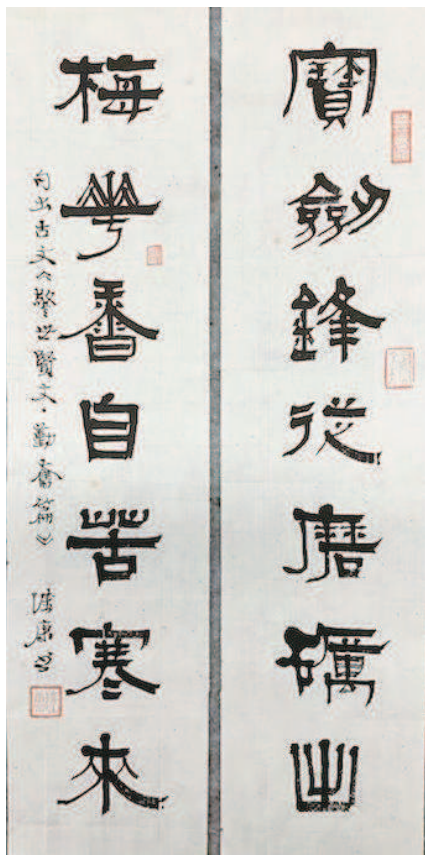 寶劍鋒從磨礪出
梅華香自苦寒來
句出古文《警世賢文·勤奮篇》